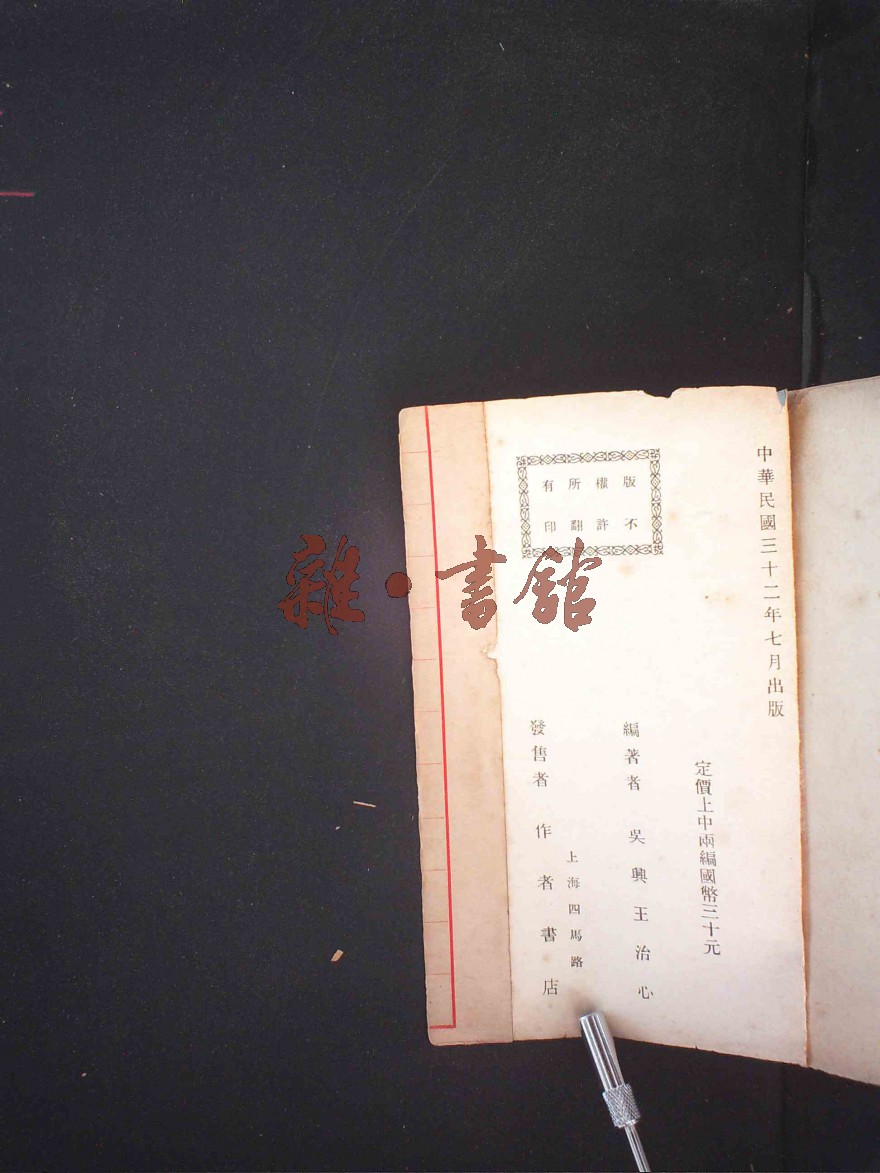 中華民國三十二年七月出版
定價上中兩編國幣三十元
編著者 吳興王治心
上海四馬路
發售者 作者書店
版權所有
不許翻印
雜·書館